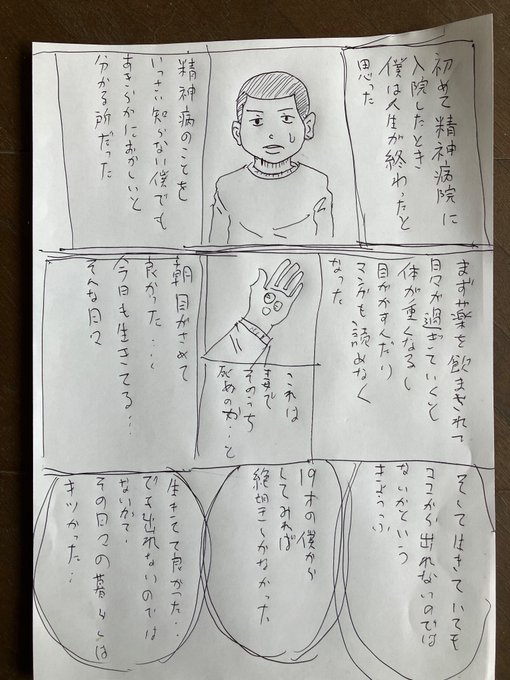 初めて精神病院に
入院したとき
僕は人生が終わったと
思った
精神病のことを
いっさい知らない僕でも
あきらかにおかしいと
分かる所だった
まず薬を飲まされて
日々が過ぎていくと
体が重くなるし
目がかすんだり
マンガも読めなく
なった
これは
毒で
そのうち
死ぬのか…と
朝目がさめて
良かった…
今日も生きてる…
そんな日々
そして生きていても
ココから出れないのでは
ないかという
きょうふ
19才の僕から
してみれば
絶望しかなかった
生きてて良かった…
でも出れないのでは
ないか？
その日々の暮らしは
キツかった…